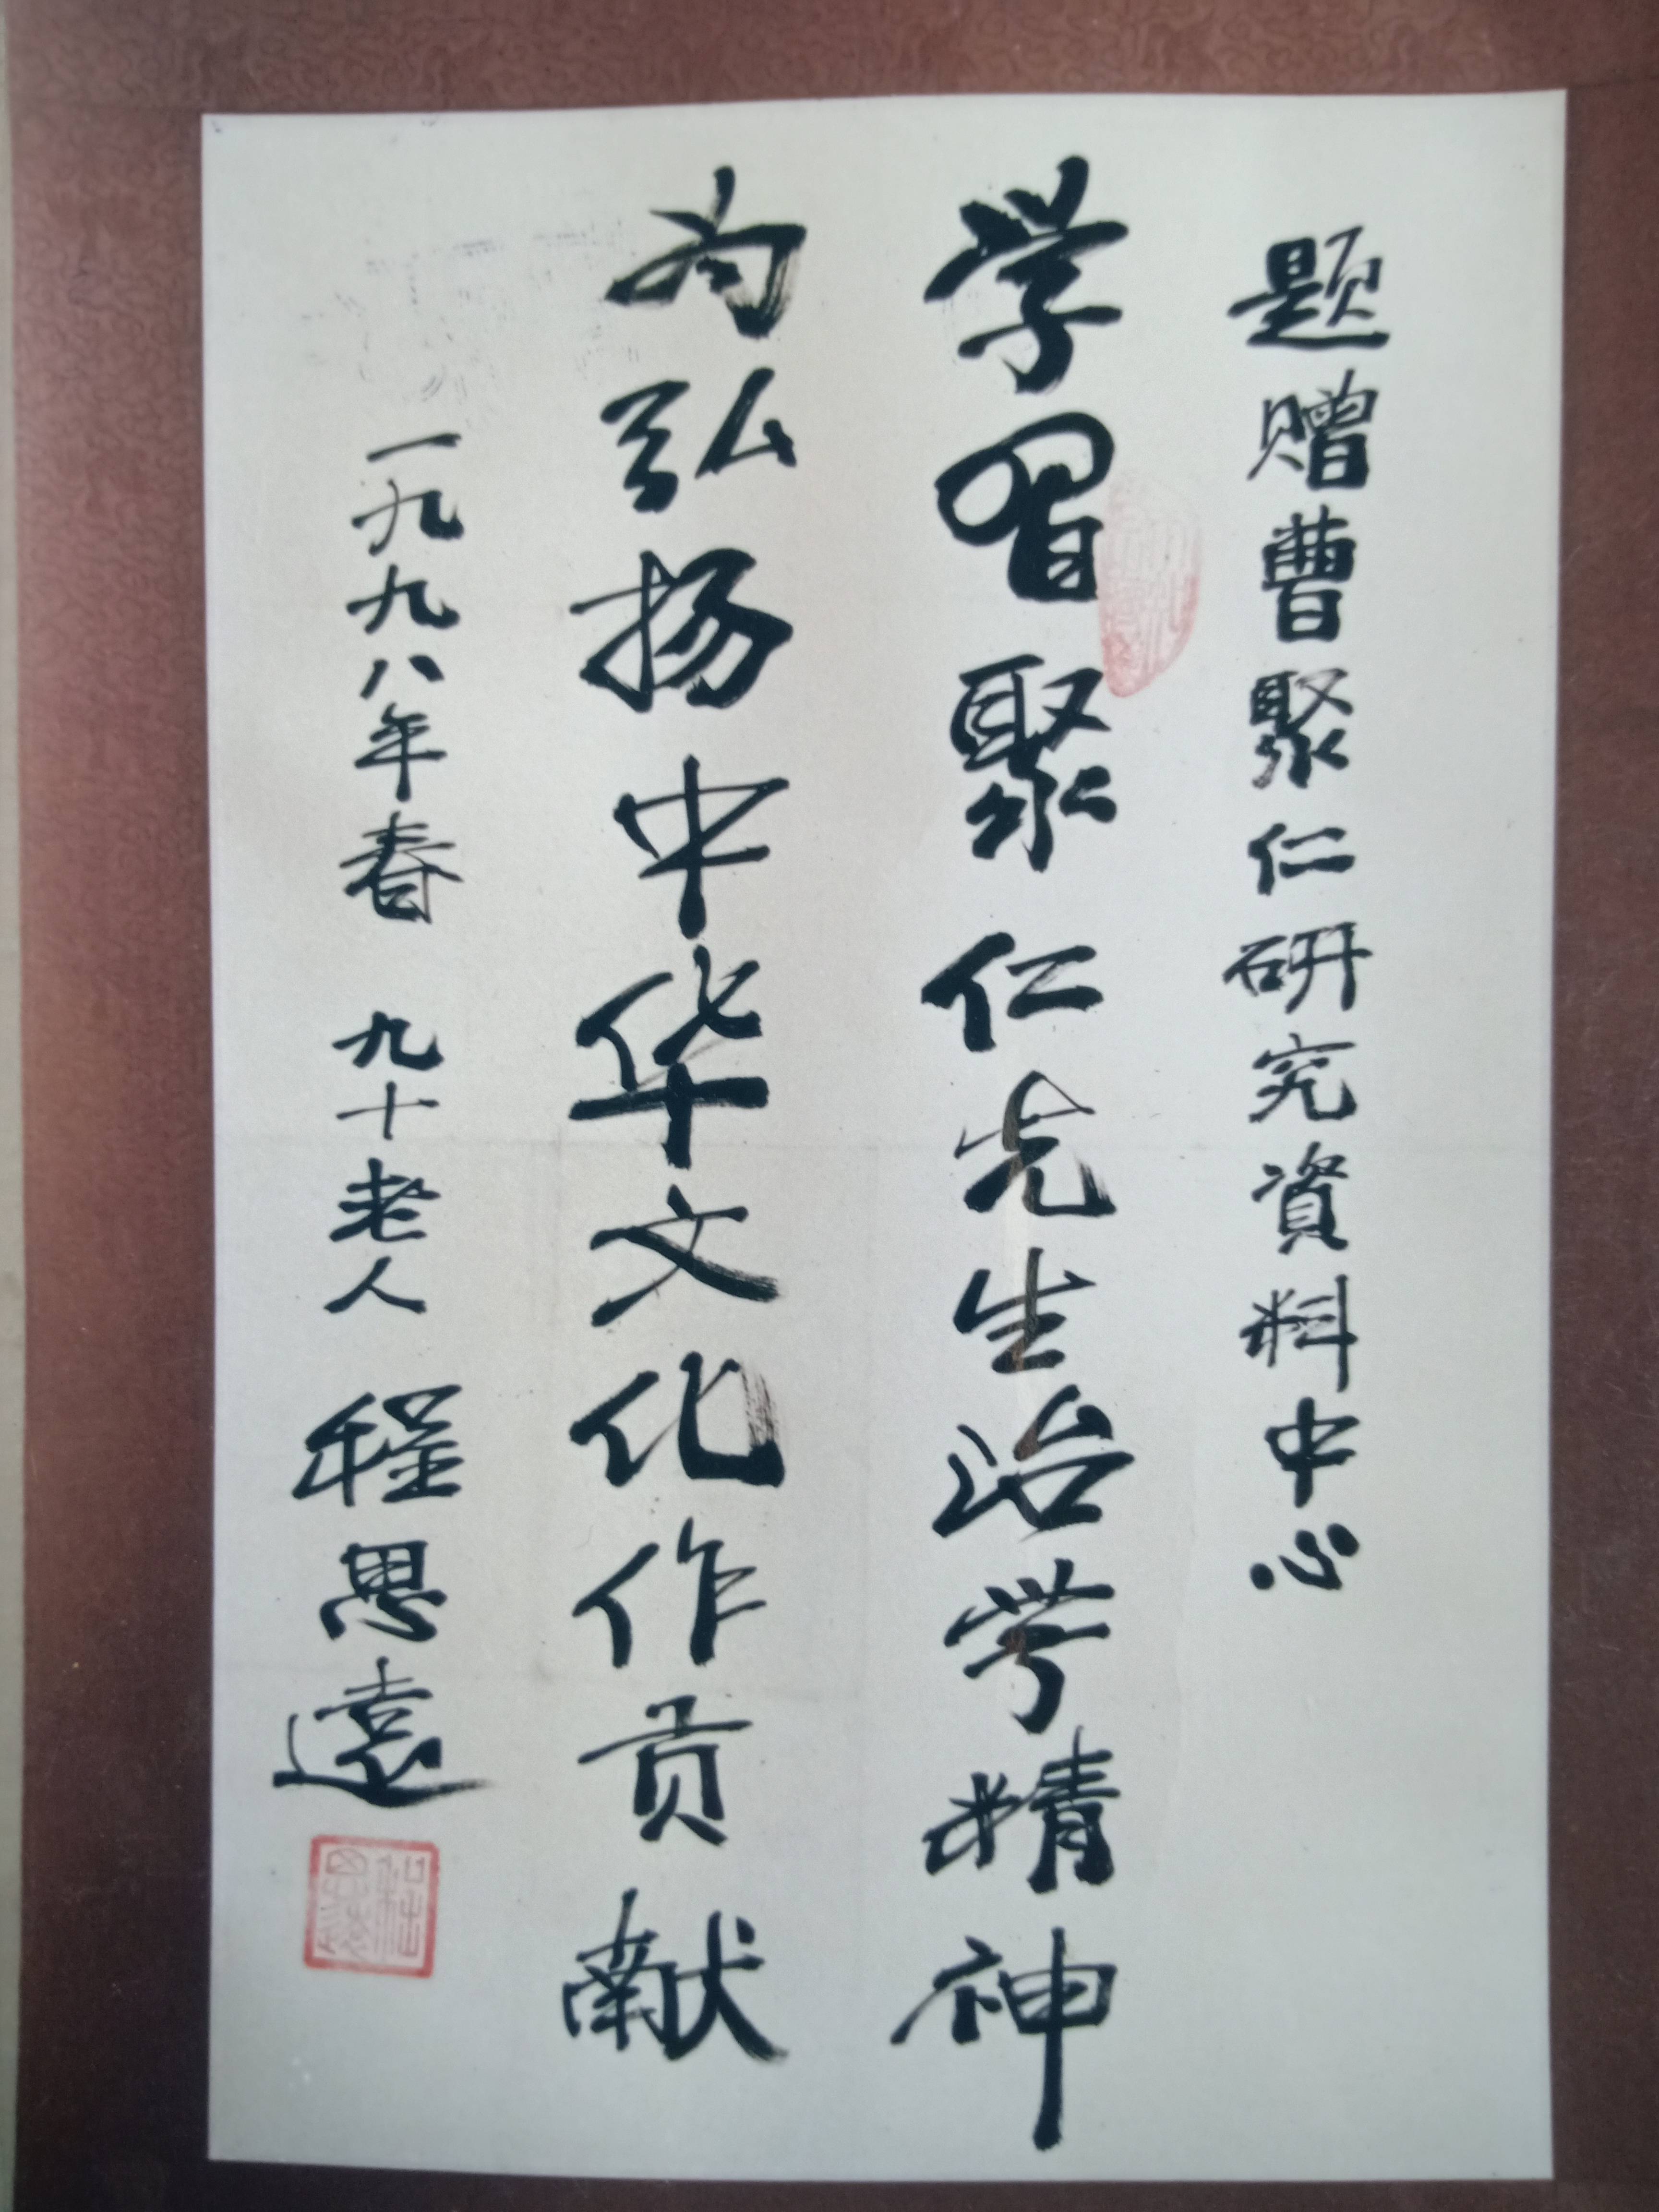 题赠曹聚仁研究資料中心
学習聚仁先生治学精神
为弘扬中华文化作贡献
一九九八年春 九十老人 程思遠